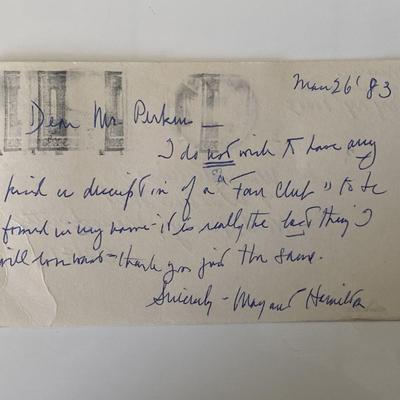 Mar 26' 83
Dear Mr. Perkins —
I do not wish to have any
kind or description of a "Fan Club" to be
formed in my name – it is really the last thing I
will ever want – thank you just the same.
Sincerely – Margaret Hamilton